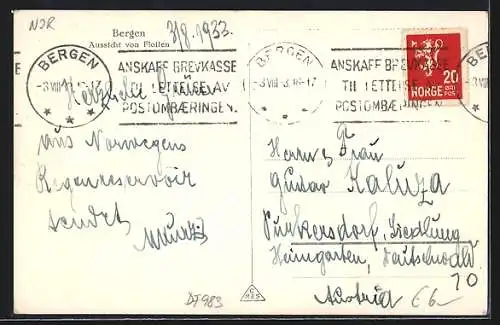 NOR
Bergen
Aussicht von Floifen
3/8.1933.
BERGEN
-3 VIII
ANSKAFF BREVKASSE
TIL LETTELSE AV
POSTOMBÆRINGEN.
BERGEN
-3 VIII
ANSKAFF BREVKASSE
TIL LETTELSE AV
POSTOMBÆRINGEN
20
ØRE
NORGE
BERGEN
Herzliche Grüsse
aus Norwegens
Regenreservoir
sendet
Herrn u. Frau
Gustav Kaluza
Purkersdorf, Siedlung
Heimgarten, Deutschwald
10
Austria
E6
DT983